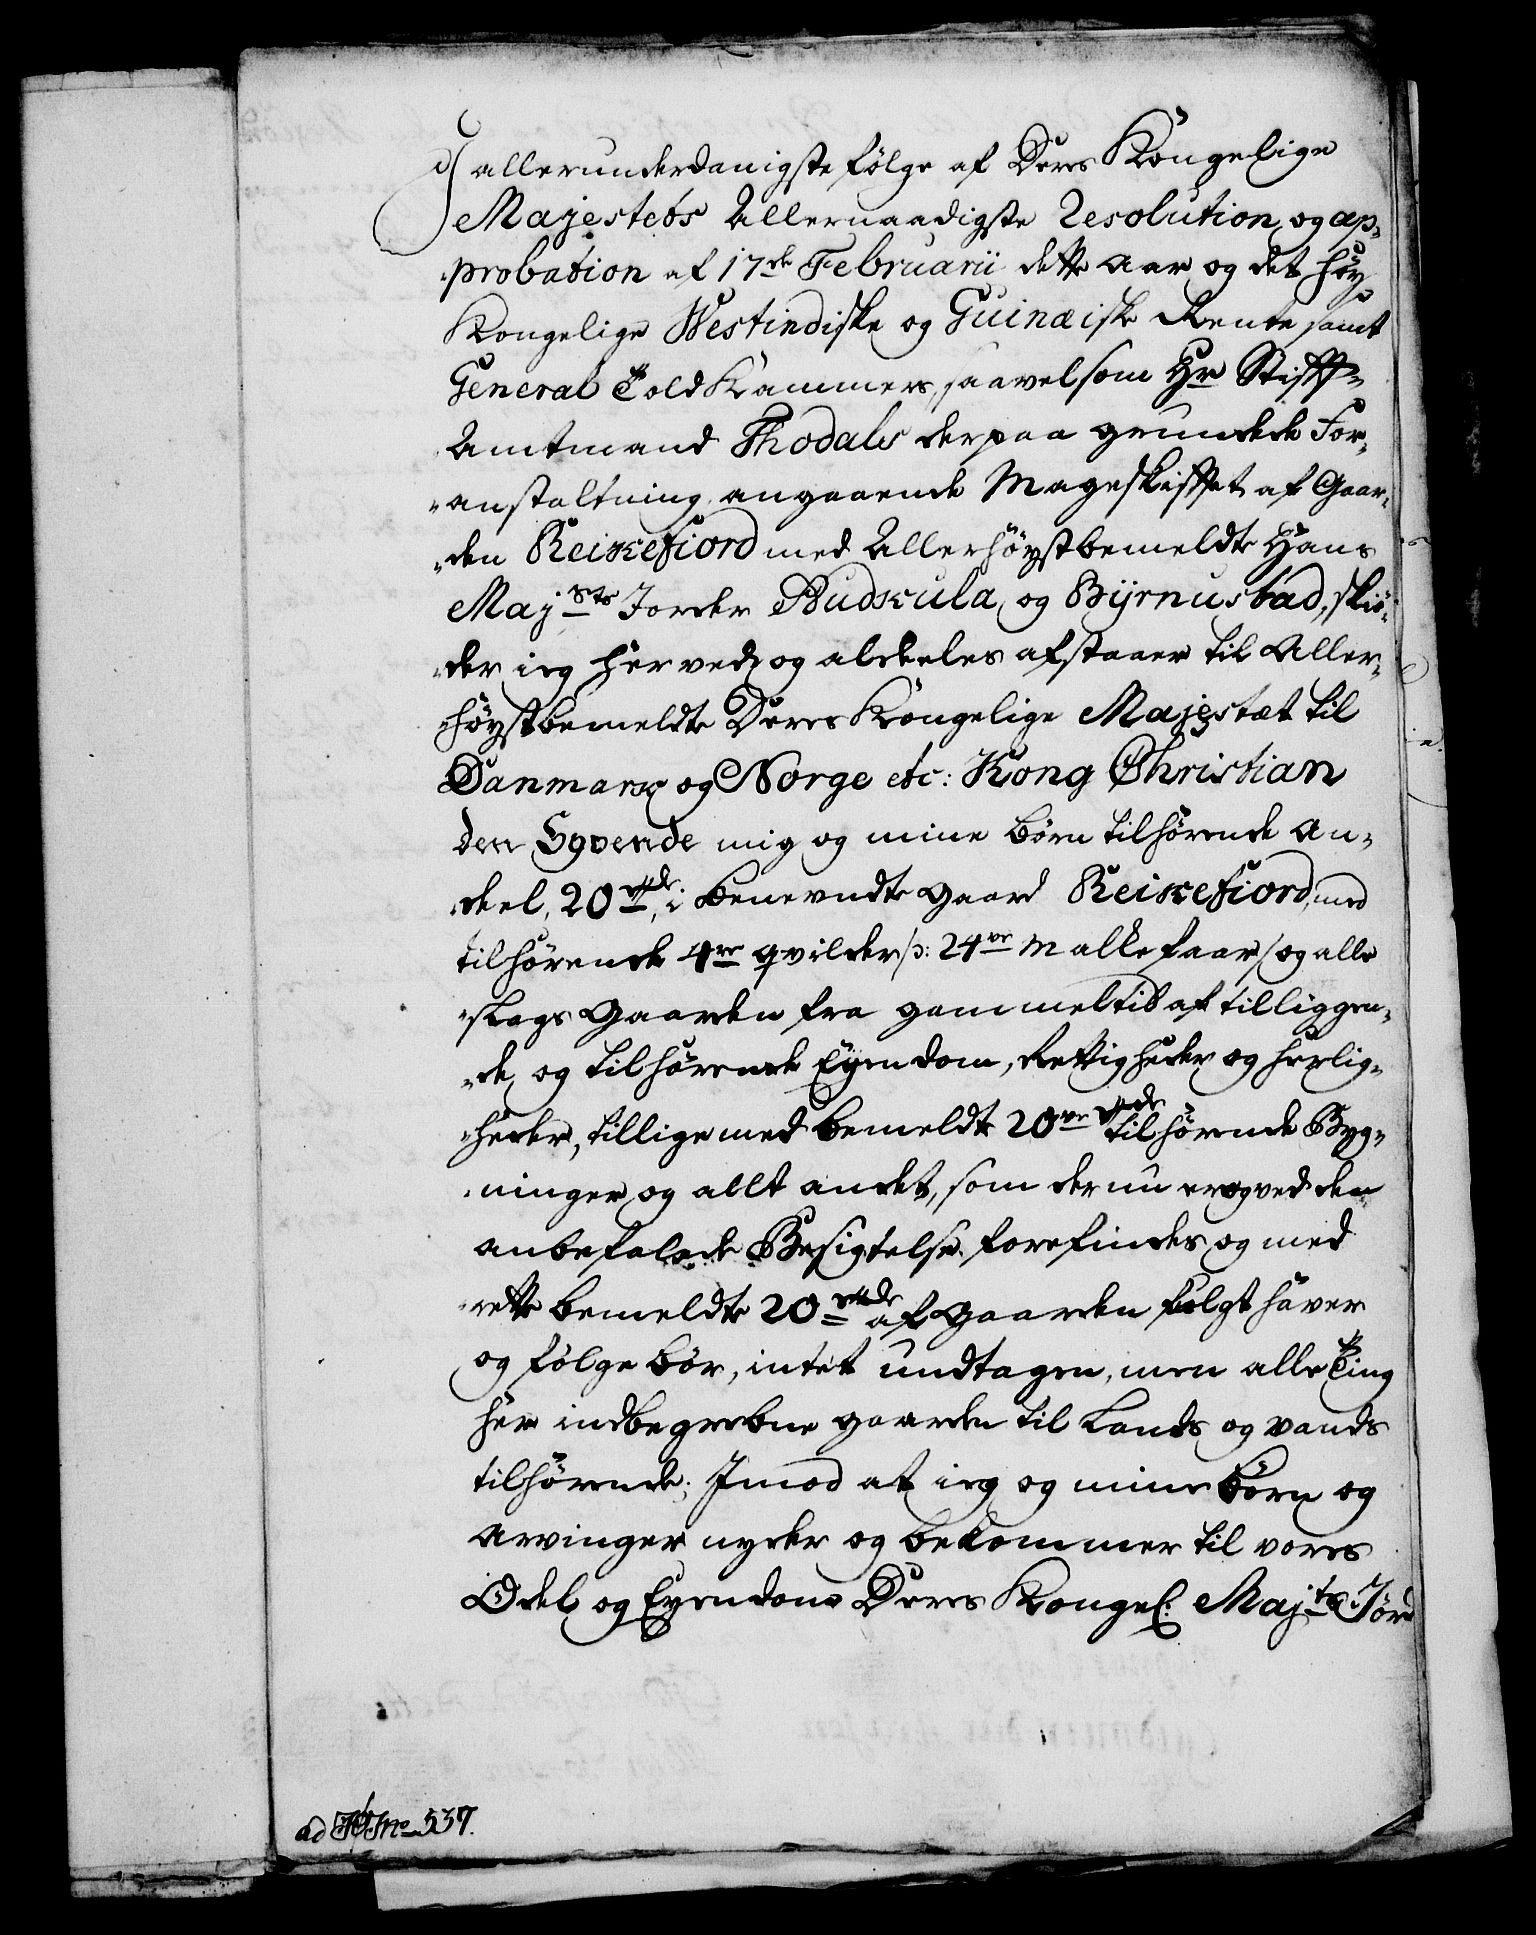 I allerunderdanigste følge af Deres Kongelige
Majestets Allernaadigste Resolution og ap-
probation af 17de Februarii dette Aar og det høy
Kongelige Westindiske og Guinæiske Rente samt
General Told Kammers, saavelsom Hr Stifft-
Amtmand Thodals derpaa grundede For-
anstaltning angaaende Mageskifftet af Gaar-
den Reikefiord med Allerhøystbemeldte Hans
Majsts Jorder Budskula og Byrnustad, skiö-
der ieg hervedog aldeeles afstaaer til Aller-
høystbemeldte Deres Kongelige Majestæt til
Danmark og Norge etc: Kong Christian
den Syvende mig og mine børn tilhørende An-
deel, 20 i benevndte Gaard Reikefiord, med
tilhørende 4re qvilder /: 24ve Malke faar / og alle
slags Gaarden fra gammel tid af tilliggen-
de og tilhørende Eyendom, Rettigheder og herlig-
heder, tillige med bemeldte 20ve tilhørende Byg-
ninger og allt andet, som der nu er og ved den
anbefalede Besigtelse forefindes og med
rette bemeldte 20 af Gaarden fulgt haver
og følge bør, intet undtagen, men alle Ting
her indbegrebne gaarden til Lands og vands
tilhørende; Imod at ieg og mine børn og
Arvinger nyder og bekommer til vores
Odel og Eyendom Deres Kongel: Majts Jörd
ad No 537.